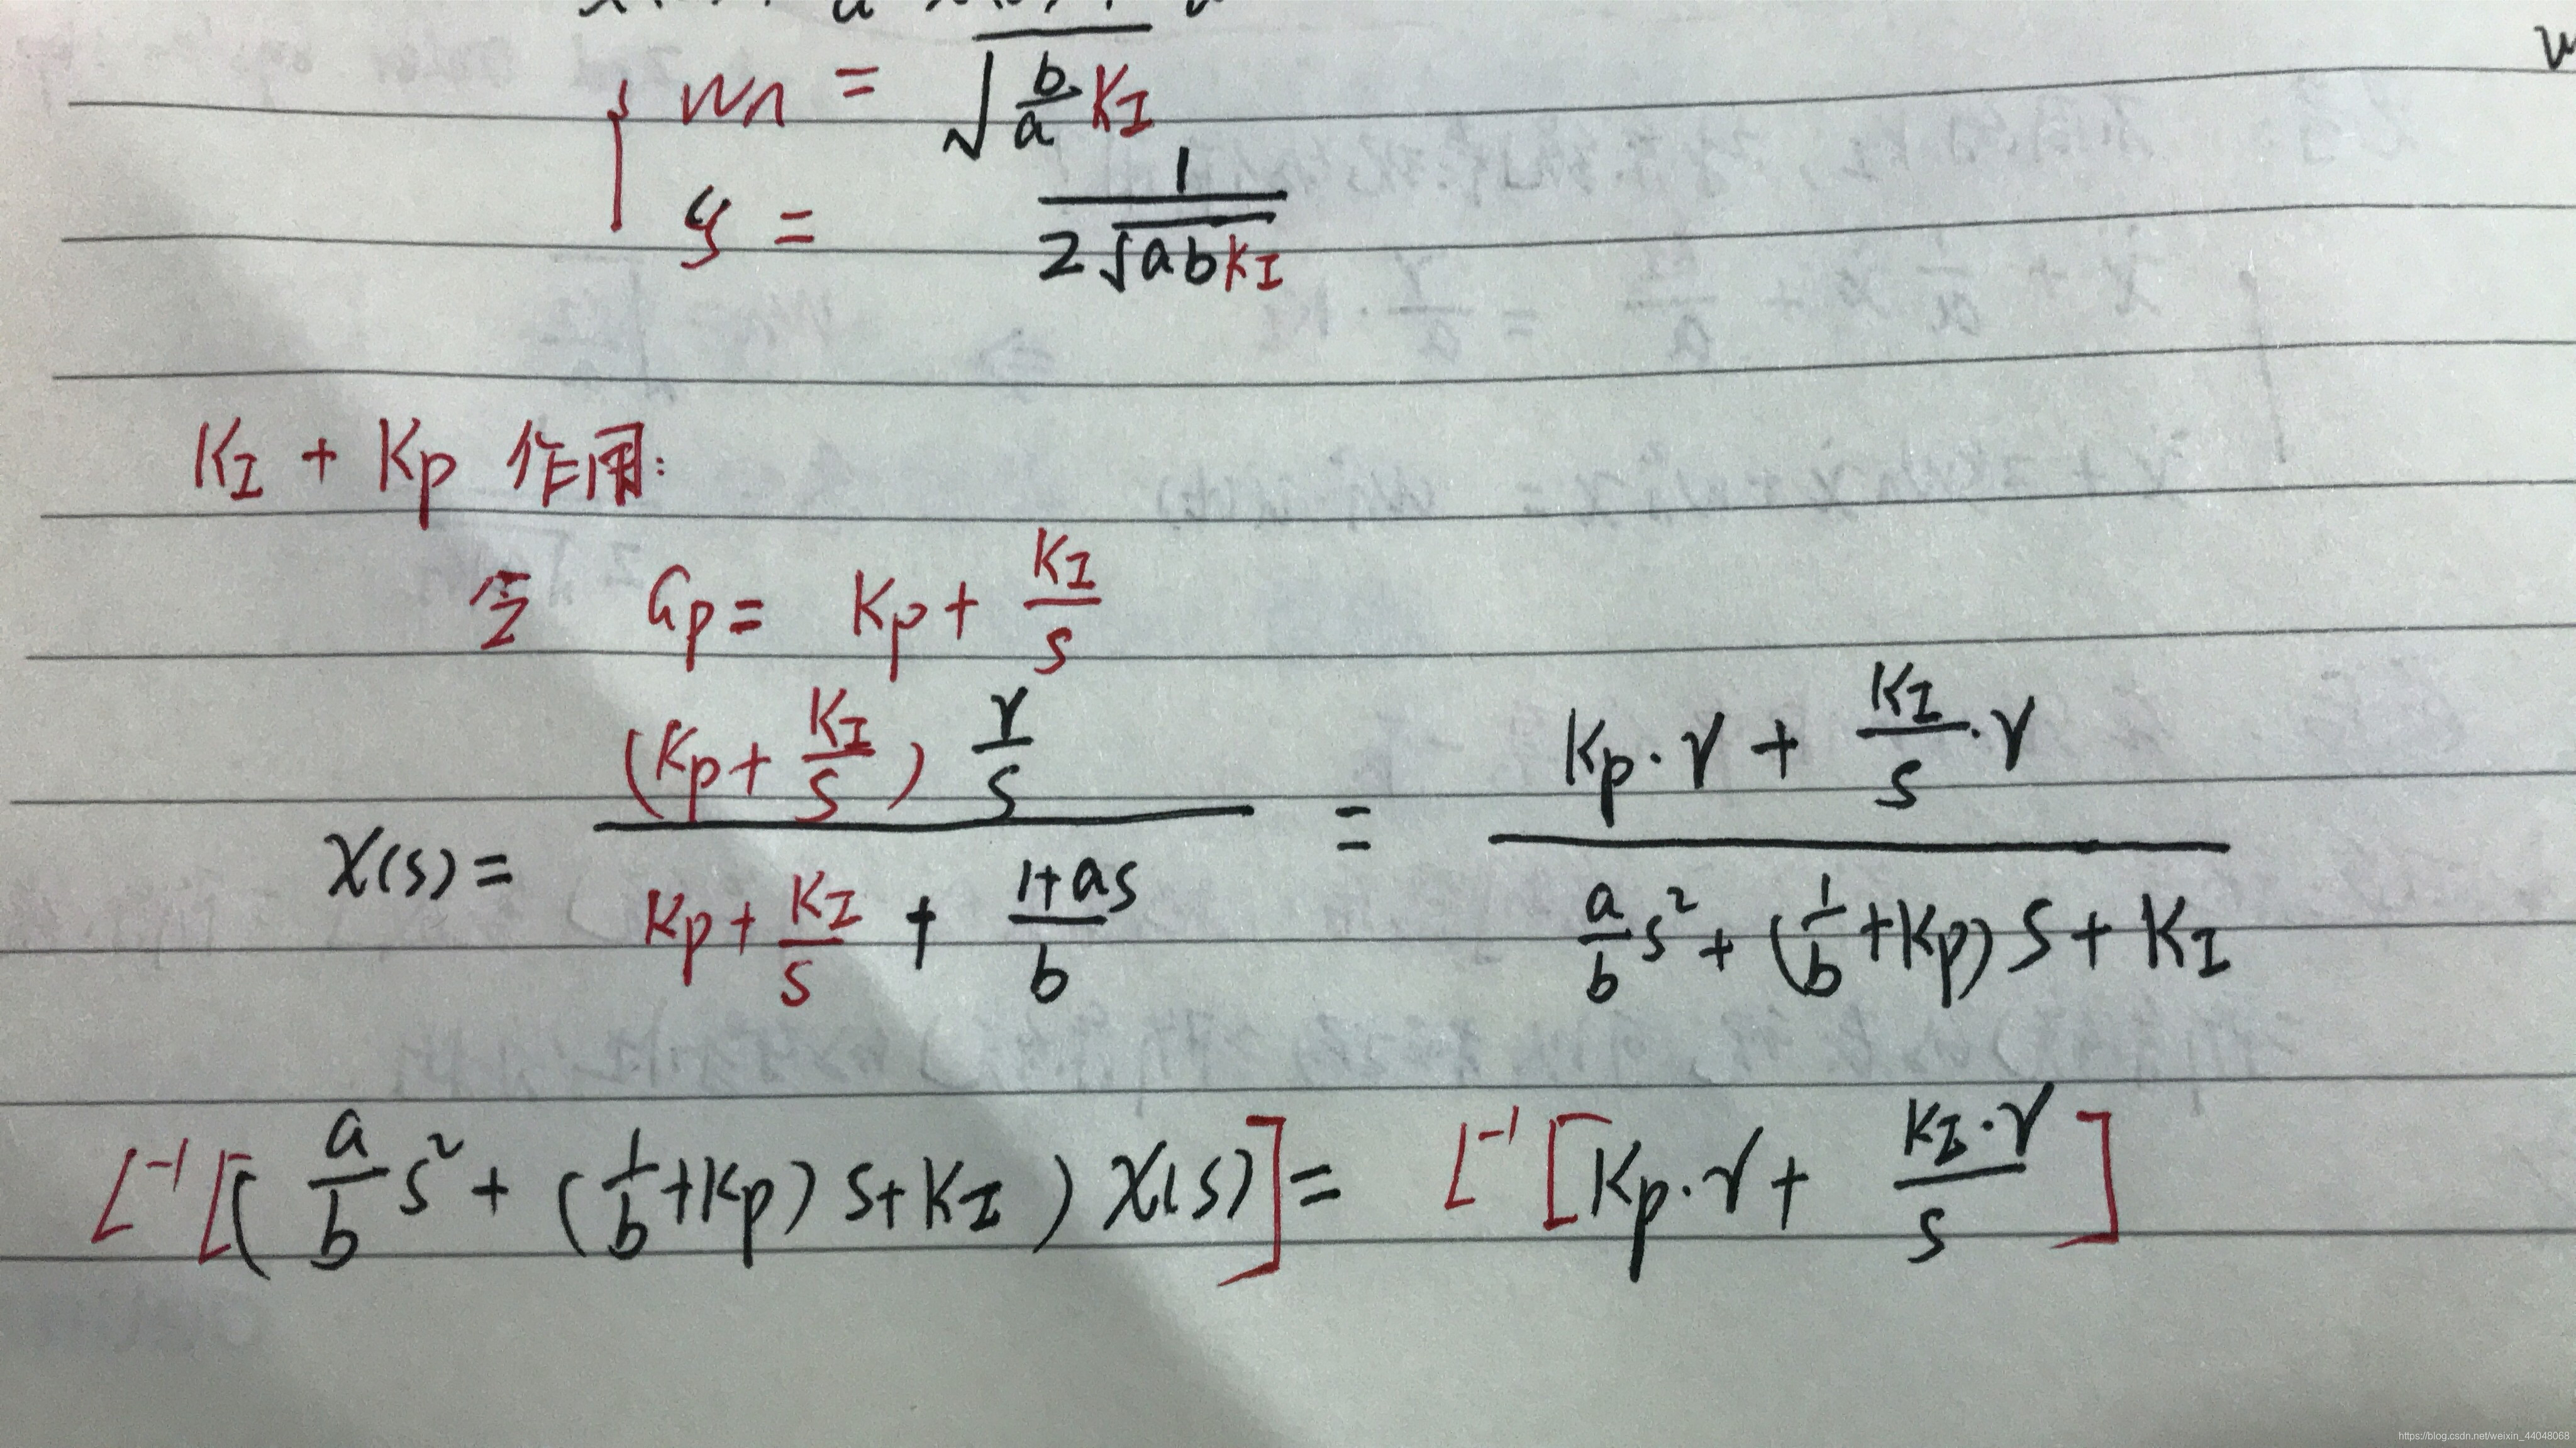 ωn = √(b/a KI)
ξ = 1/(2√(abKI))
KI + Kp 作用:
令 Gp = Kp + KI/s
X(s) = ((Kp + KI/s) r/s)/(Kp + KI/s + (1+as)/b) = (Kp·r + KI/s·r)/(a/b s² + (1/b + Kp) s + KI)
L⁻¹[(a/b s² + (1/b + Kp) s + KI) X(s)] = L⁻¹[Kp·r + KI·r/s]
https://blog.csdn.net/weixin_44048068